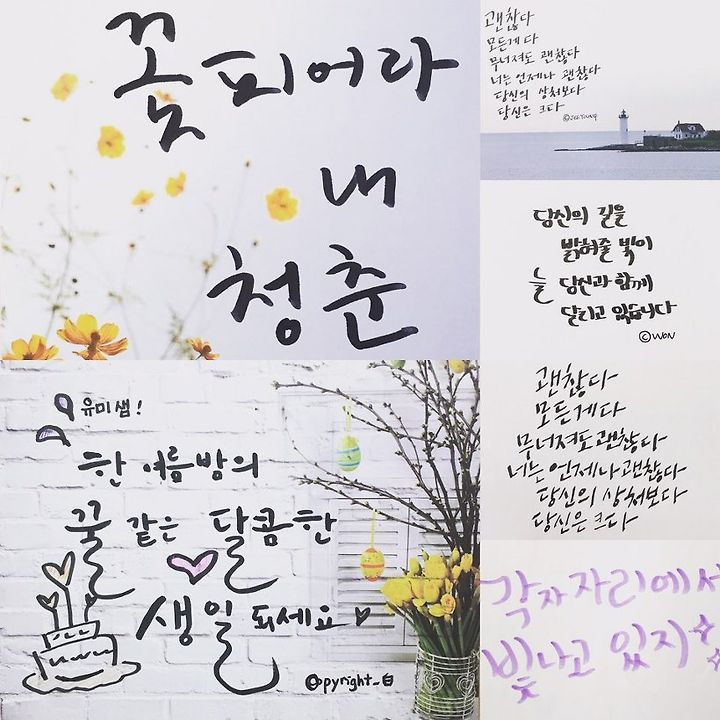 꽃 피어라
내
청춘
괜찮다
모든게 다
무너져도 괜찮다
너는 언제나 괜찮다
당신의 상처보다
당신은 크다
©JEEYOUNG
당신의 길을
밝혀줄 빛이
늘 당신과 함께
달리고 있습니다
©WON
유미쌤!
한 여름밤의
꿀 같은 달콤한
생일 되세요
©opyright_白
괜찮다
모든게 다
무너져도 괜찮다
너는 언제나 괜찮다
당신의 상처보다
당신은 크다
각자 자리에서
빛나고 있지